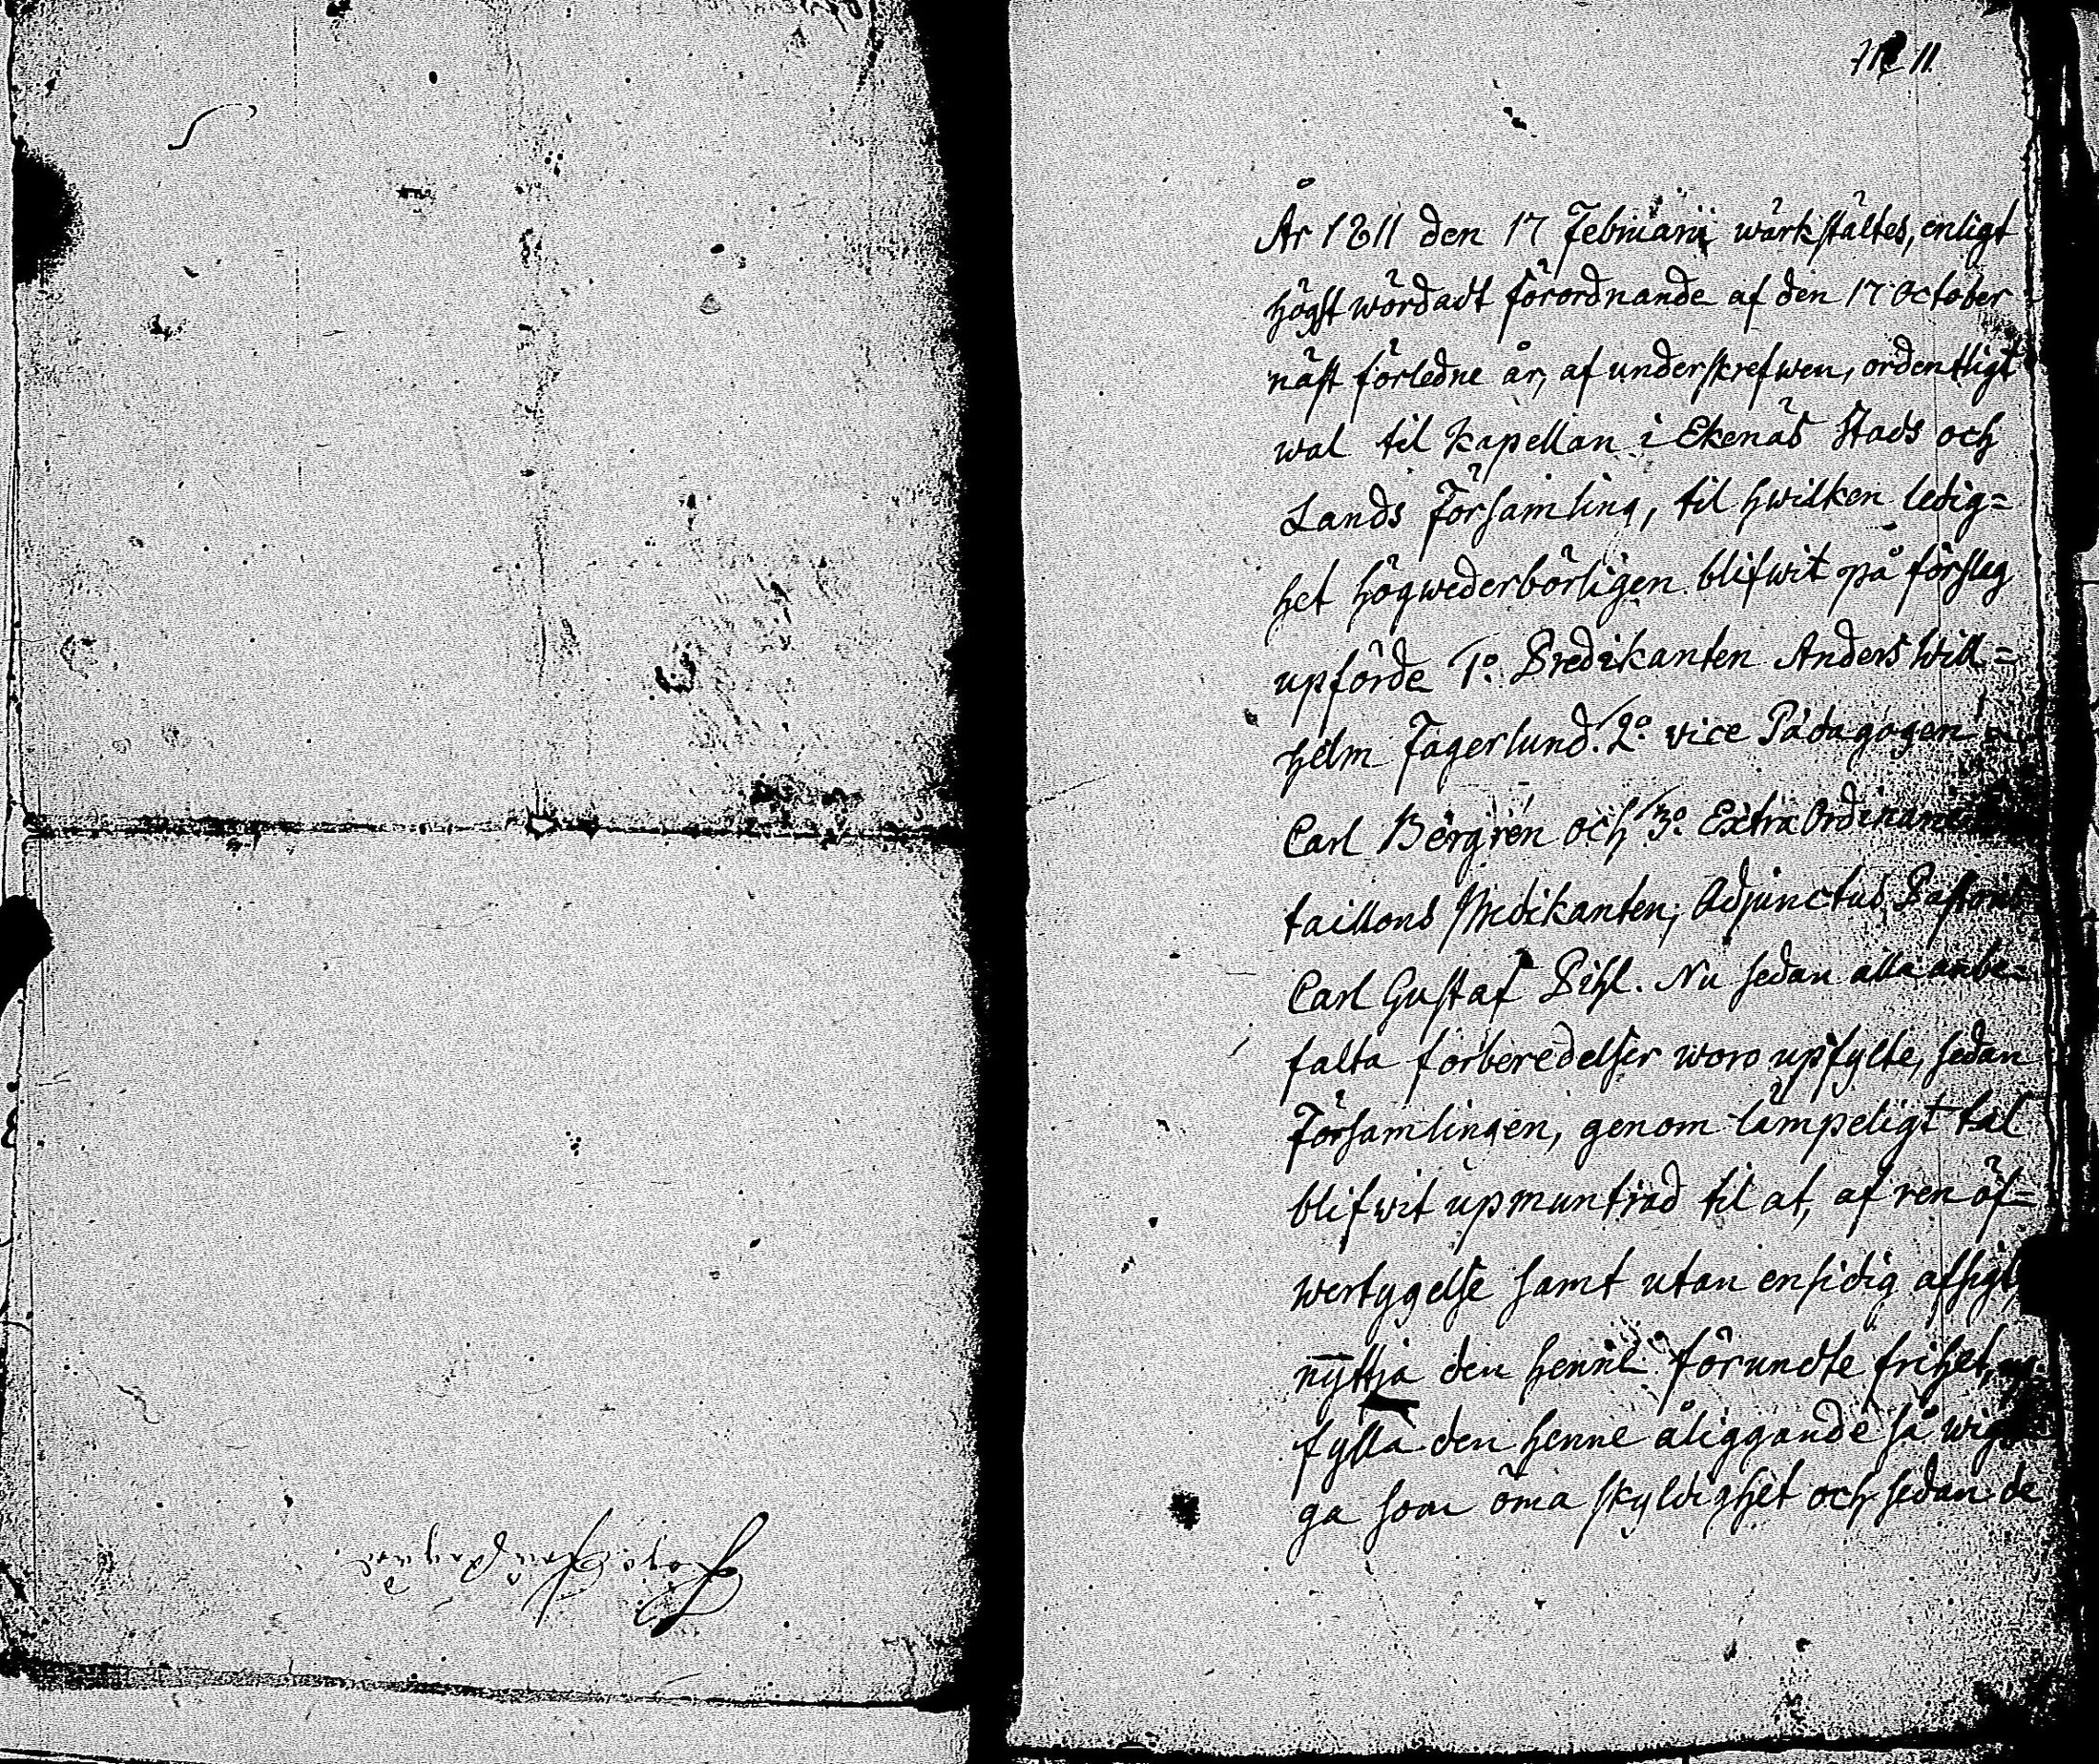 N:o 11.
År 1811 den 17 Februarii wärkstältes, enligt
högst wördadt förordnande af den 17 October
näst förledne år, af underskrefwen, ordentligt
wal til Kapellan i Ekenäs Stads och
Lands Församling, til hwilken ledig=
het högwederbörligen blifwit på förslag
upförde 1:o Predikanten Anders Will=
helm Fagerlund. 2:o vice Pädagogen
Carl Bergren och 3:o Extra Ordinarie
taillons Predikanten, Adjunctus Pastoris
Carl Gustaf Pihl. Nu sedan alla anbe=
falta förberedelser woro upfylte, sedan
Församlingen, genom lämpeligt tal
blifwit upmuntrad til at, af ren öf=
wertygelse samt utan ensidig afsigt,
nyttja den henne förundte frihet,
fylla den henne åliggande så wigti
ga som öma skyldighet och sedan de